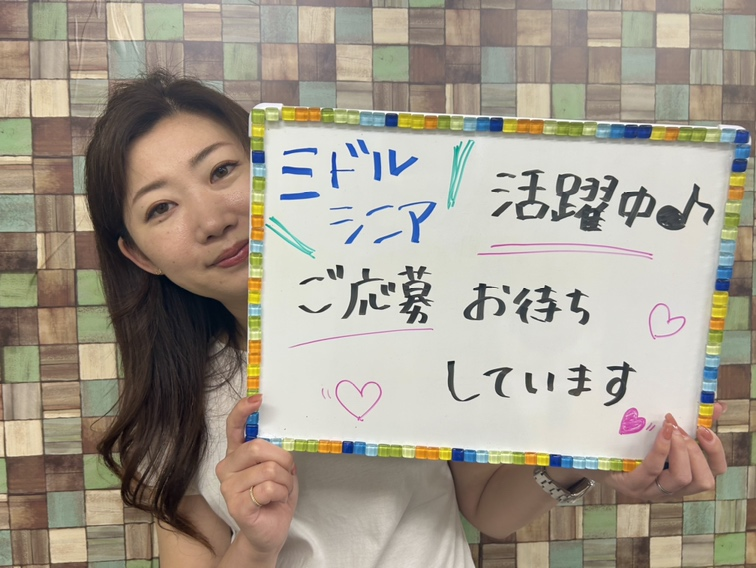 ミドル
シニア
活躍中♪
ご応募 お待ち
しています